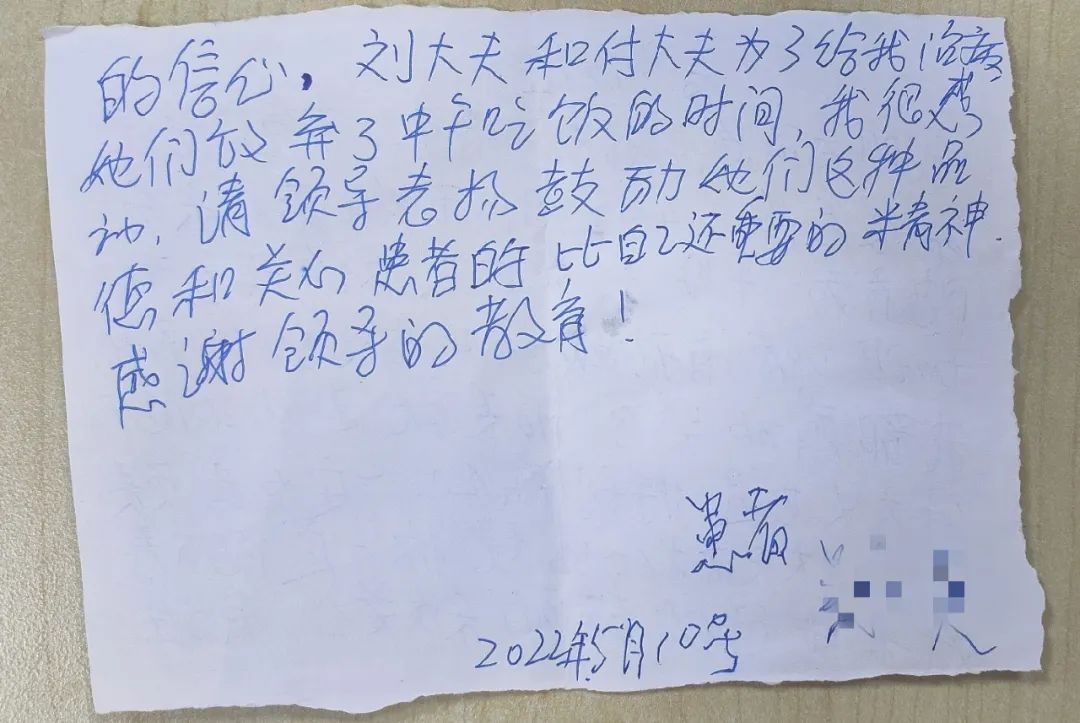 的信心，刘大夫和付大夫为了给我治病
他们放弃了中午吃饭的时间，我很感
动，请领导老扬鼓励他们这种品
德和关心患者的比自己还重要的精神.
感谢领导的教育！
患者
2022年5月10号